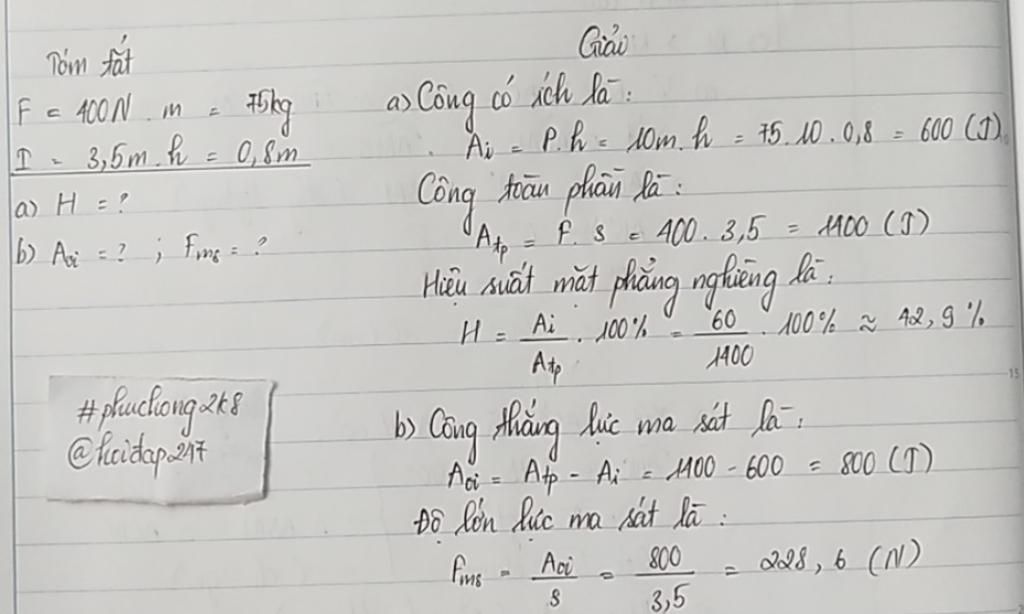 Tóm tắt
F = 400N m = 75kg
I = 3,5m. h = 0,8m
a) H = ?
b) Aoi = ? ; Fms = ?
#phuchong2k8
@hoidap247
Giải
a) Công có ích là:
Ai = P.h = 10m.h = 75.10.0,8 = 600 (J).
Công toàn phần là:
Atp = F.s = 400.3,5 = 1400 (J)
Hiệu suất mặt phẳng nghiêng là:
H = Ai/Atp . 100% = 60/1400 . 100% ≈ 42,9%
b) Công thắng lực ma sát là:
Aoi = Atp - Ai = 1400 - 600 = 800 (J)
Độ lớn lực ma sát là:
Fms = Aoi/s = 800/3,5 = 228,6 (N)
15